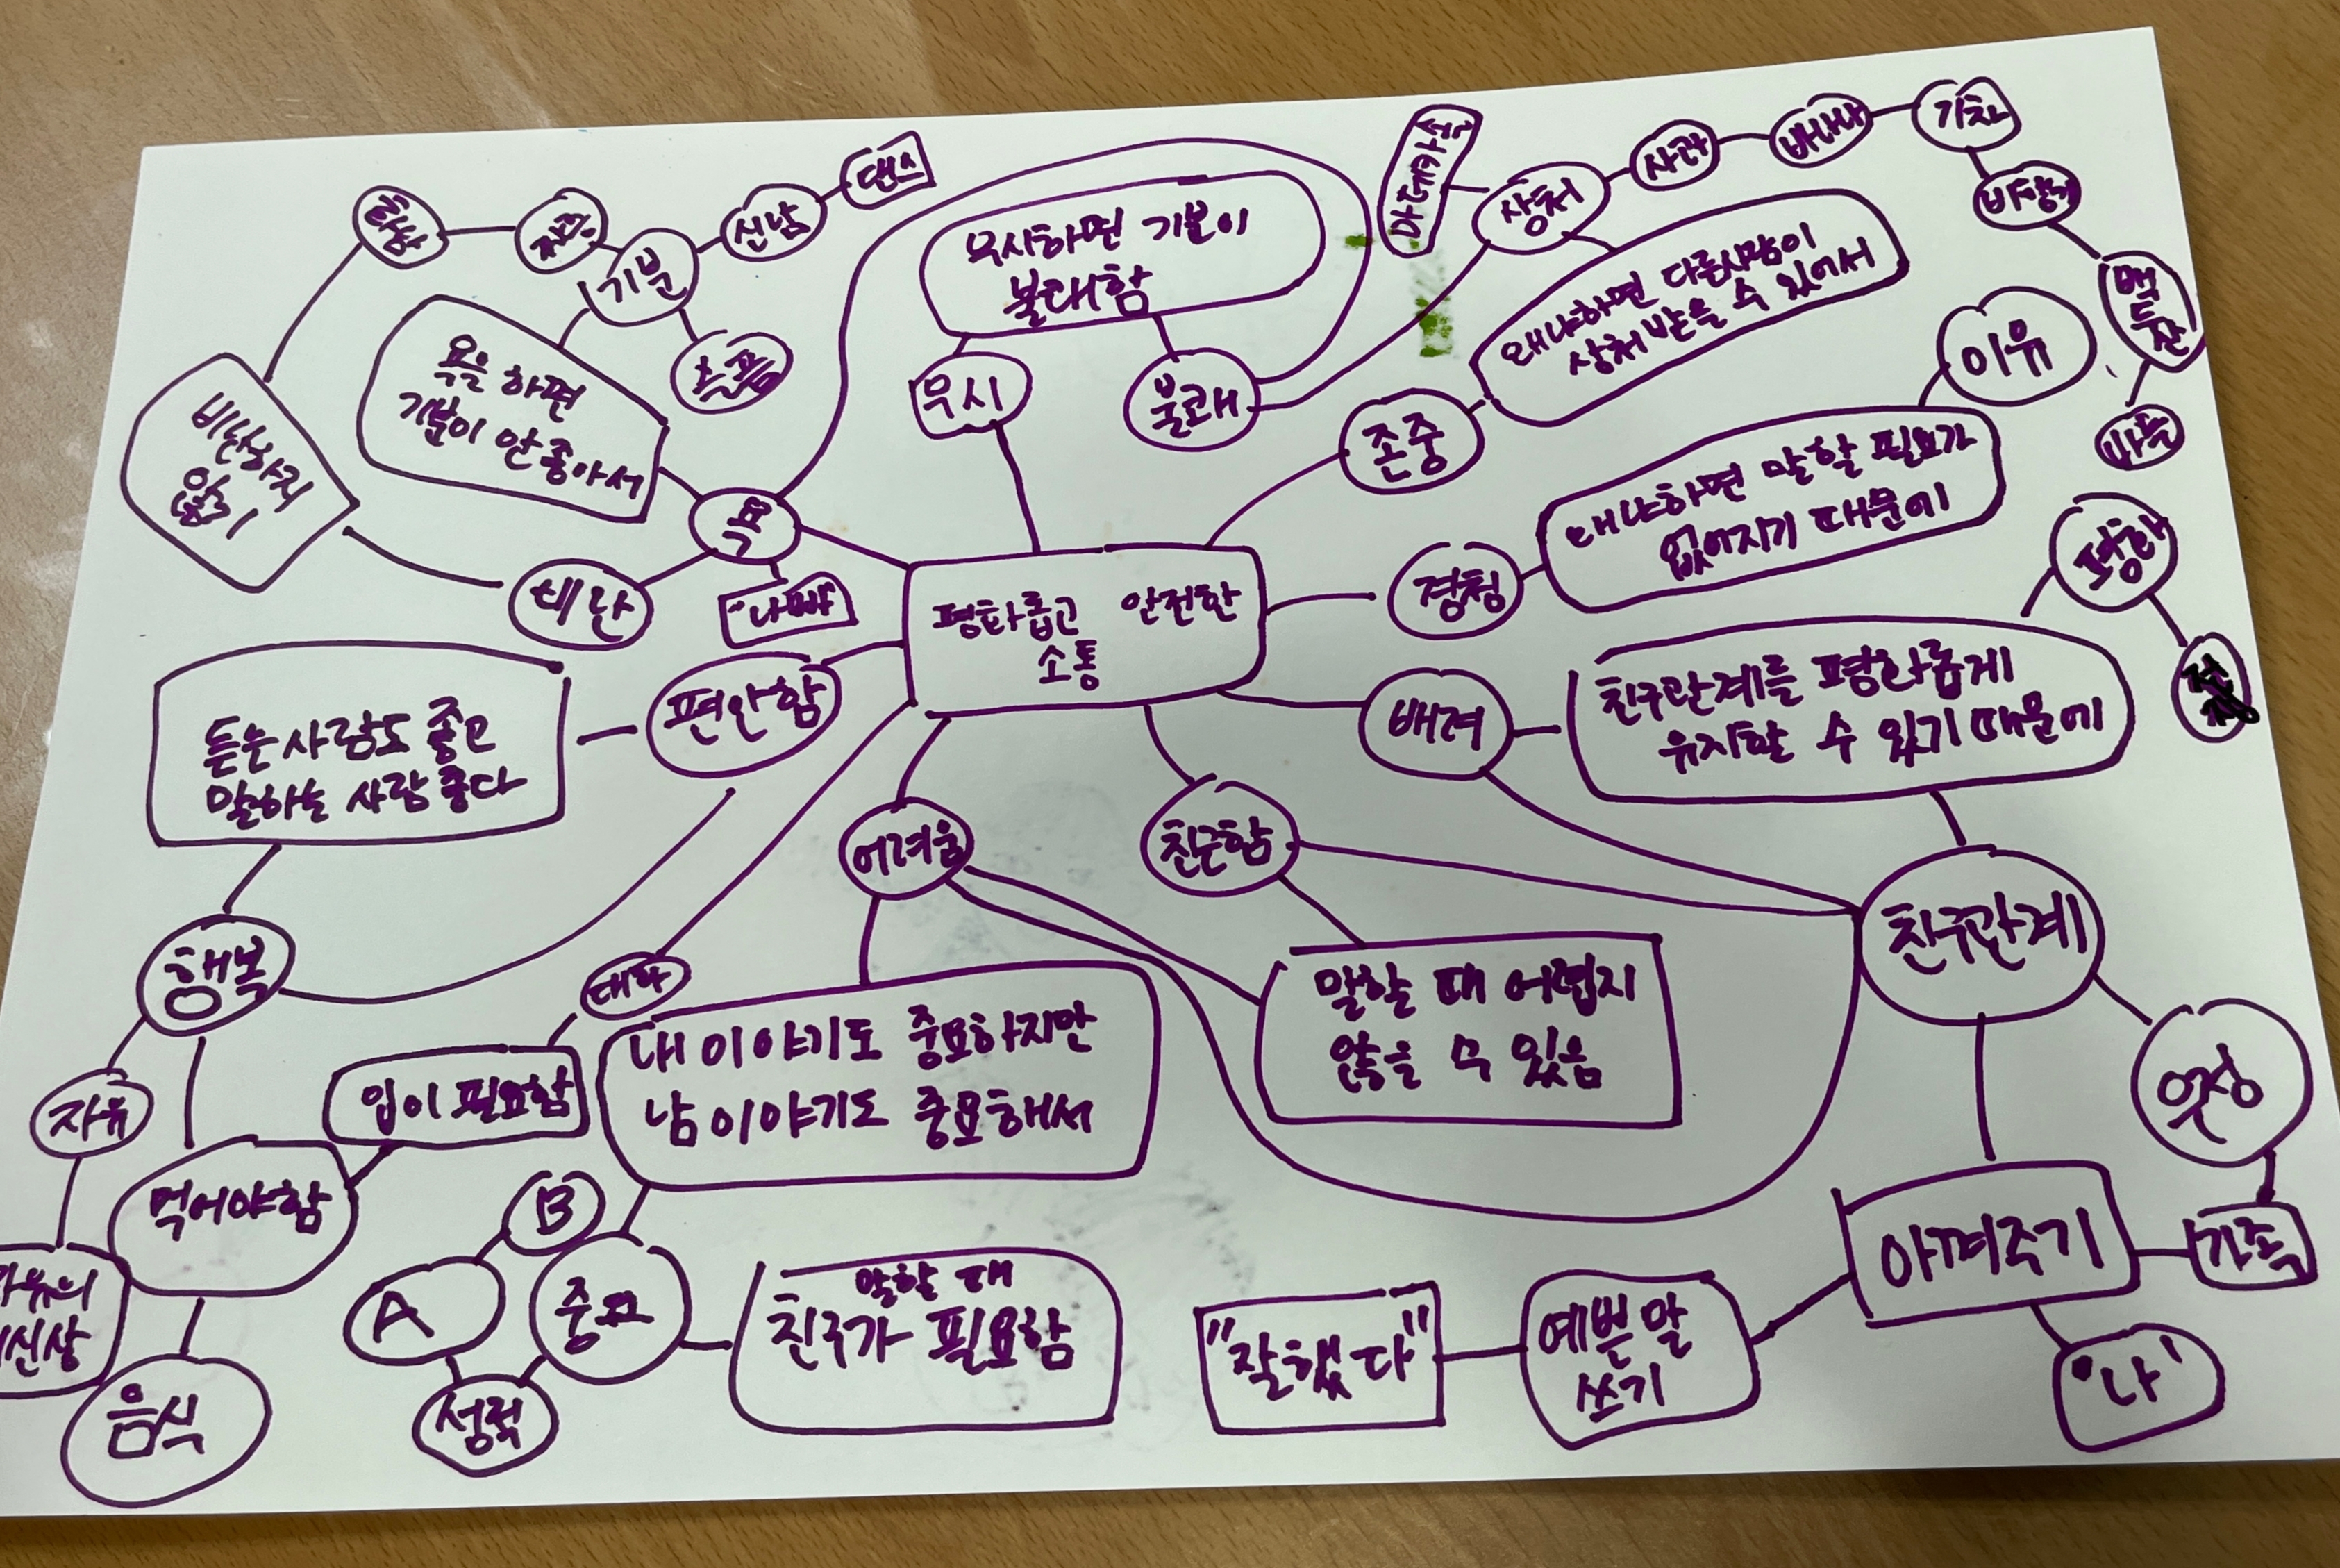 댄스
신남
기분
슬픔
욕을 하면
기분이 안 좋아서
비난하지
않기
비난
욕
"나빠"
무시하면 기분이
불쾌함
무시
불쾌
마데카솔
상처
사과
바나나
기차
비행기
백두산
왜냐하면 다른사람이
상처 받을 수 있어서
존중
이유
왜냐하면 말할 필요가
없어지기 때문에
경청
평화롭고 안전한
소통
편안함
듣는 사람도 좋고
말하는 사람 좋다
행복
자유
자유의
여신상
먹어야함
음식
입이 필요함
대화
어려움
내 이야기도 중요하지만
남 이야기도 중요해서
중요
B
A
성적
말할 때
친구가 필요함
친근함
말할 때 어렵지
않을 수 있음
배려
친구관계를 평화롭게
유지할 수 있기 때문에
평화
친구관계
아껴주기
가족
'나'
예쁜 말
쓰기
"잘했다"